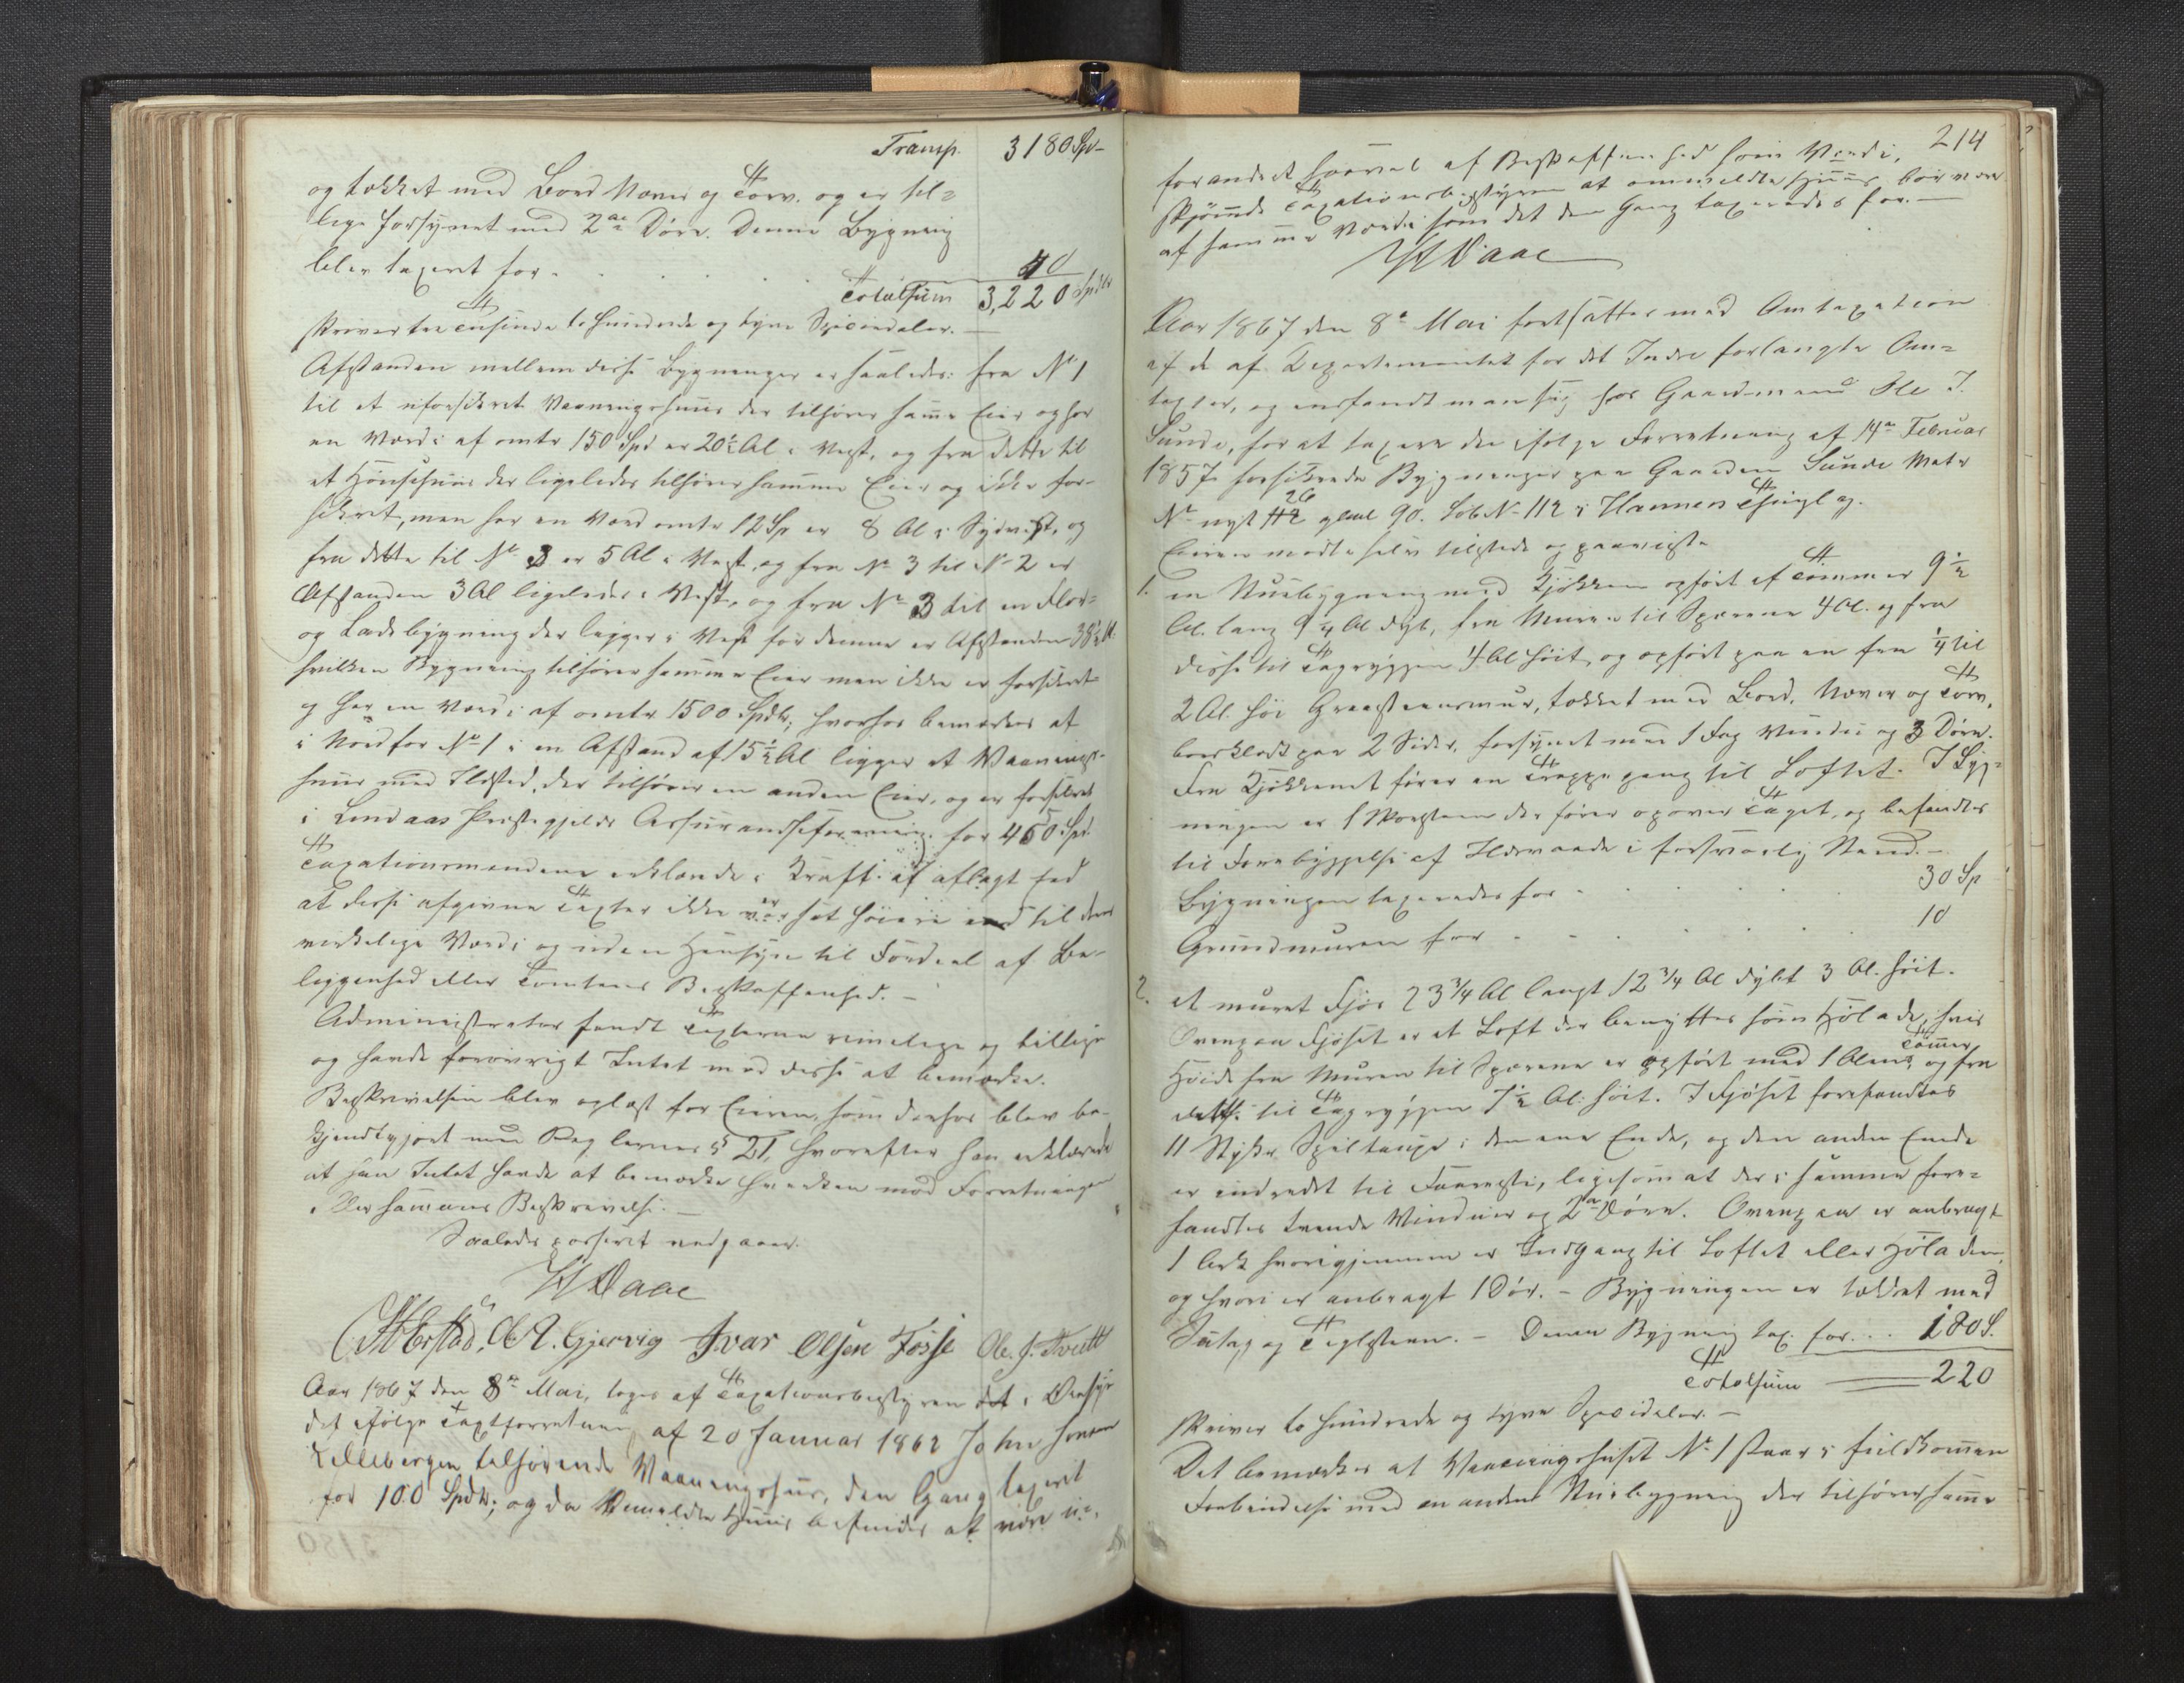 Transp. 3180 Spd
og tækket med Bord Næver og Torv. og er til=
lige forsynet med 2de Døre. Denne Bygning
blev taxeret for . . . . 40
Totalsum 3,220 Spdlr
skriver tre Tusinde to Hundrede og tyve Speciedaler. —
Afstanden mellem disse Bygninger er saaledes: fra No 1
til et uforsikret Vaaningshuus der tilhører samme Eier og har
en Værdi af omtr 150 Spd er 20½ Al i Vest, og fra dette til
et Hønsehuus der ligeledes tilhører samme Eier og ikke for-
sikret, men har en Værd omtr 12 Sp er 8 Al i Sydvest, og
fra dette til No 3 er 5 Al i Vest, og fra No 3 til No 2 er
Afstanden 3 Al ligeledes i Vest, og fra No 3 til en Flor=
og Ladebygning der ligger i Vest for denne er Afstanden 38½ Al.
hvilken Bygning tilhører samme Eier men ikke er forsikret
og har en Værdi af omtr 1500 Spdlr; hvorhos bemærkes at
i Nord for No 1 i en Afstand af 15½ Al ligger et Vaanings-
huus med Ildsted, der tilhører en anden Eier, og er forsikret
i Lindaas Præstegjelds Assuranceforening for 450 Spd.
Taxationsmændene erklærede i Kraft af aflagt Eed
at disse afgivne Taxter ikke er sat høiere end til dens
virkelige Værdi og uden Hensyn til Fordeel af Be-
liggenhed eller Tomtens Beskaffenhed. —
Administrator fandt Taxterne rimelige og billige
og havde forøvrigt Intet mod disse at bemærke.
Beskrivelsen blev oplæst for Eieren, som derhos blev be-
kjendtgjort med Reglernes § 21, hvorefter han erklærede
at han Intet havde at bemærke hverken mod Forretningen
eller sammes Beskrivelse. —
Saaledes passeret vedgaaer.
H Daae
Ole A. Gjervig Ivar Olsen Fosse Ole J. Tvett
Aar 1867 den 8de Mai, toges af Taxationsbestyreren det i Øiesyn
det ifølge Taxtforretning af 20 Januar 1862 John Jonsen
Lillebergen tilhørende Vaaningshus, den Gang taxeret
for 100 Spdlr; og da anmeldte Huus befindes at være u=
214
forandret saavel af Beskaffenhed som Værdi,
skjønnede Taxationsbestyreren at anmeldte Huus bør være
af samme Værdi som det den Gang taxeredes for. —
H Daae
Aar 1867 den 8de Mai fortsattes med Omtaxation
af de af Departementet for det Indre forlangte Om=
taxter, og indfandt man sig hos Gaardmand Ole J.
Sunde, for at taxere de ifølge Forretning af 14de Februar
1857 forsikrede Bygninger paa Gaarden Sunde Matr
No nyt 26 gl. 90. Løb No 112 i Hammers Thinglag.
Eieren mødte selv tilstede og paaviste
1. en Stuebygning med Kjøkken opført af Tømmer 9½
Al. lang 9¼ Al dyb, fra Muren til Sperrene 4 Al. og fra
disse til Tagryggen 4 Al høit og opført paa en fra ¼ til
2 Al. høi Graasteensmur, tækket med Bord, Næver og Torv,
bordklædt paa 2 Sider, forsynet med 1 Fag Vindue og 3 Døre.
Fra Kjøkkenet fører en Trappegang til Loftet. I Byg=
ningen er 1 Skorsteen der fører op over Taget, og befandtes
til Forebyggelse af Ildsvaade i forsvarlig Stand. —
Bygningen taxeredes for . . . . . 30 Sp
Grundmuren for . . . . . 10
2. et muret Fjøs 23¾ Al langt 12¾ Al dybt 3 Al. høit.
Ovenpaa Fjøset er et Loft der benyttes som Høladet, hvis
Høide fra Muren til Sperrene er opført med 1 Alens Tømmer og fra
dette til Tagryggen 7½ Al. høit. I Fjøset forefandtes
11 Stykr Spiltauge i den ene Ende, og den anden Ende
er indredet til Faaresti, ligesom at der i samme fore=
fandtes tvende Vinduer og 2de Døre. Ovenpaa er anbragt
1 Ark hvorigjennem er Indgang til Loftet eller Høladen,
og hvori er anbragt 1 Dør. — Bygningen er tækket med
Sutag og Teglsteen. — Denne Bygning tax. for . . . 180 S.
Totalsum — 220
skriver to Hundrede og tyve Speciedaler. —
Det bemærkes at Vaaningshuset No 1 staar i fuldkommen
Forbindelse med en anden Stuebygning der tilhører samme